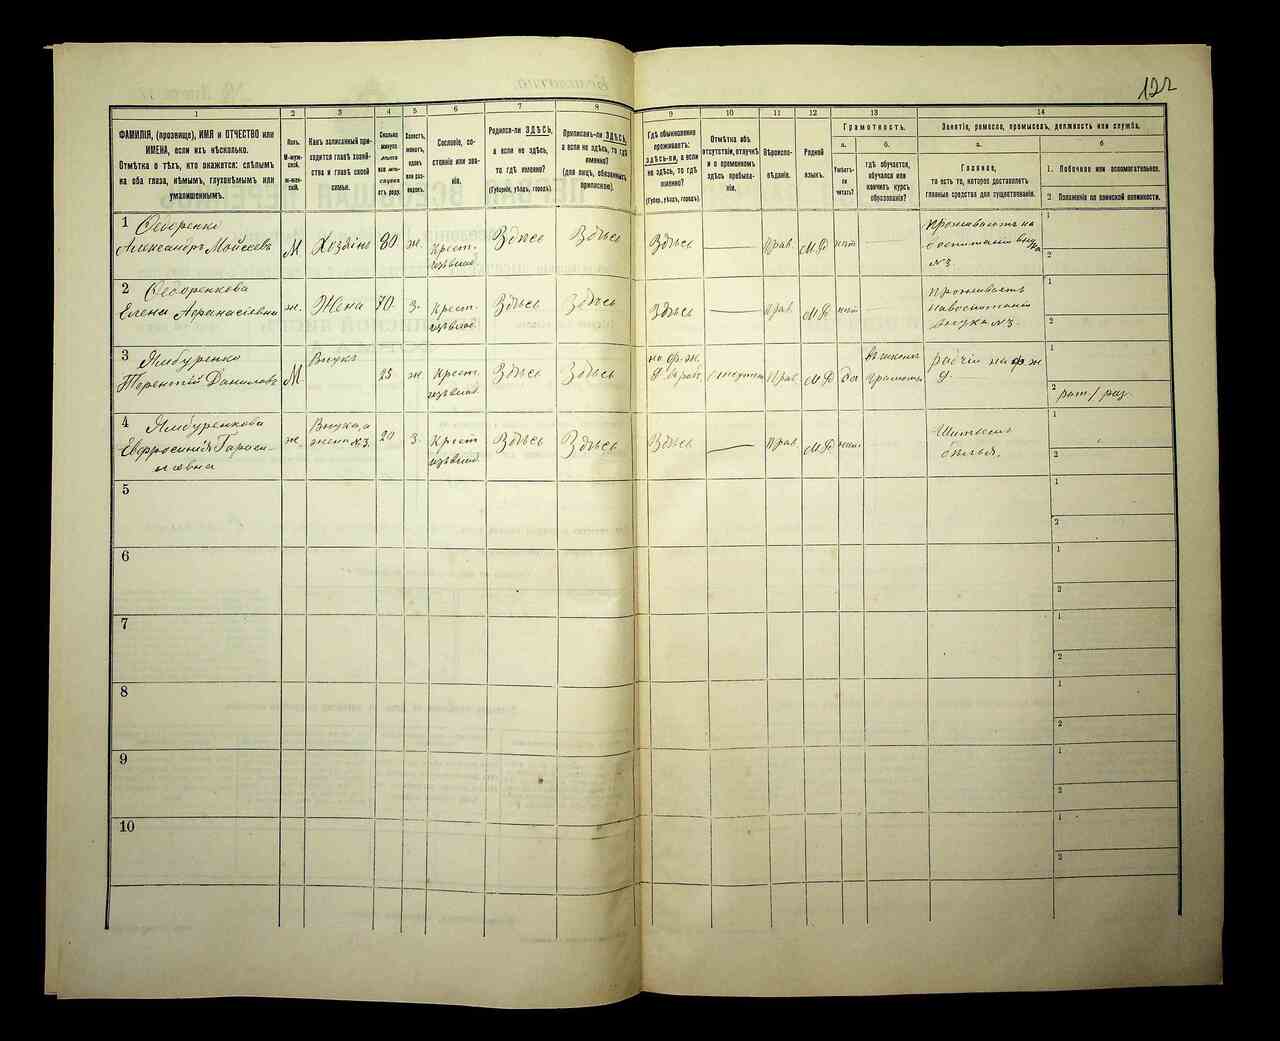 122
1
2
3
4
5
6
7
8
9
10
11
12
13
14
ФАМИЛІЯ, (прозвище), ИМЯ и ОТЧЕСТВО или
ИМЕНА, если ихъ нѣсколько.
Отмѣтка о тѣхъ, кто окажется: слѣпымъ
на оба глаза, нѣмымъ, глухонѣмымъ или
умалишеннымъ.
Полъ.
М-муж-
ской.
ж-жен-
скій.
Какъ записанный при-
ходится главѣ хозяй-
ства и главѣ своей
семьи.
Сколько
минуло
лѣтъ
или мѣс-
отъ роду.
Холостъ,
женатъ,
вдовъ
или раз-
веденъ.
Сословіе, со-
стояніе или зва-
ніе.
Родился-ли ЗДѢСЬ,
а если не здѣсь,
то гдѣ именно?
(Губернія, уѣздъ, городъ).
Приписанъ-ли ЗДѢСЬ,
а если не здѣсь, то гдѣ
именно?
(для лицъ, обязанныхъ
припискою).
Гдѣ обыкновенно
проживаетъ:
здѣсь-ли, а если
не здѣсь, то гдѣ
именно?
(Губер., уѣздъ, городъ).
Отмѣтка объ
отсутствіи, отлучкѣ
и о временномъ
здѣсь пребыва-
ніи.
Вѣроиспо-
вѣданіе.
Родной
языкъ.
Грамотность.
а.
б.
Умѣетъ-
ли
читать?
гдѣ обучается,
обучался или
кончилъ курсъ
образованія?
Занятіе, ремесло, промыселъ, должность или служба.
а.
б
Главное,
то есть то, которое доставляетъ
главныя средства для существованія.
1. Побочное или вспомогательное.
2 Положеніе по воинской повинности.
1
Александръ Мойсеевъ
М
Хозяинъ
80
ж.
Крест.
Здѣсь
Здѣсь
Здѣсь
Прав.
М.Р
нѣт
Проживаетъ на
воспитаніи внука
№3.
1
2
2
Сидоренкова
Елена Афанасіевна
ж.
Жена
70
з.
Крест.
Здѣсь
Здѣсь
Здѣсь
Прав.
М.Р
нѣт
Проживаетъ
на воспитаніи
внука №3.
1
2
3
Ямбуренко
Терентій Даниловъ
М
Внукъ
25
ж.
Крест.
Здѣсь
Здѣсь
Прав.
М.Р
Да
рабочій на
1
2
4
Ямбуренкова
Евфросинія Гараси-
мовна
ж.
Внука, а
жена №3.
20
з.
Крест
Здѣсь
Здѣсь
Здѣсь
Прав.
М.Р
нѣт.
Шитьемъ
бѣлья.
1
2
5
1
2
6
1
2
7
1
2
8
1
2
9
1
2
10
1
2